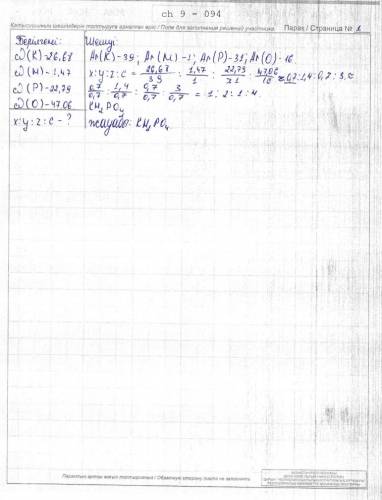 ch 9 - 094
Қатысушының шешімдерін толтыруға арналған өріс / Поле для заполнения решений участника Парақ / Страница № 1
Берілгені: Шешуі:
ω(K)-26,67 Ar(K)-39; Ar(H)-1; Ar(P)-31; Ar(O)-16
ω(H)-1,47 x:y:z:c = 26,67/39 : 1,47/1 : 22,79/31 : 47,06/16 ≈ 0,7:1,4:0,7:3 ≈
ω(P)-22,79 0,7/0,7 : 1,4/0,7 : 0,7/0,7 : 3/0,7 = 1:2:1:4.
ω(O)-47,06 KH₂PO₄
x:y:z:c-? жауабы: KH₂PO₄
Парақтың артқы жағын толтырмаңыз / Обратную сторону листа не заполнять